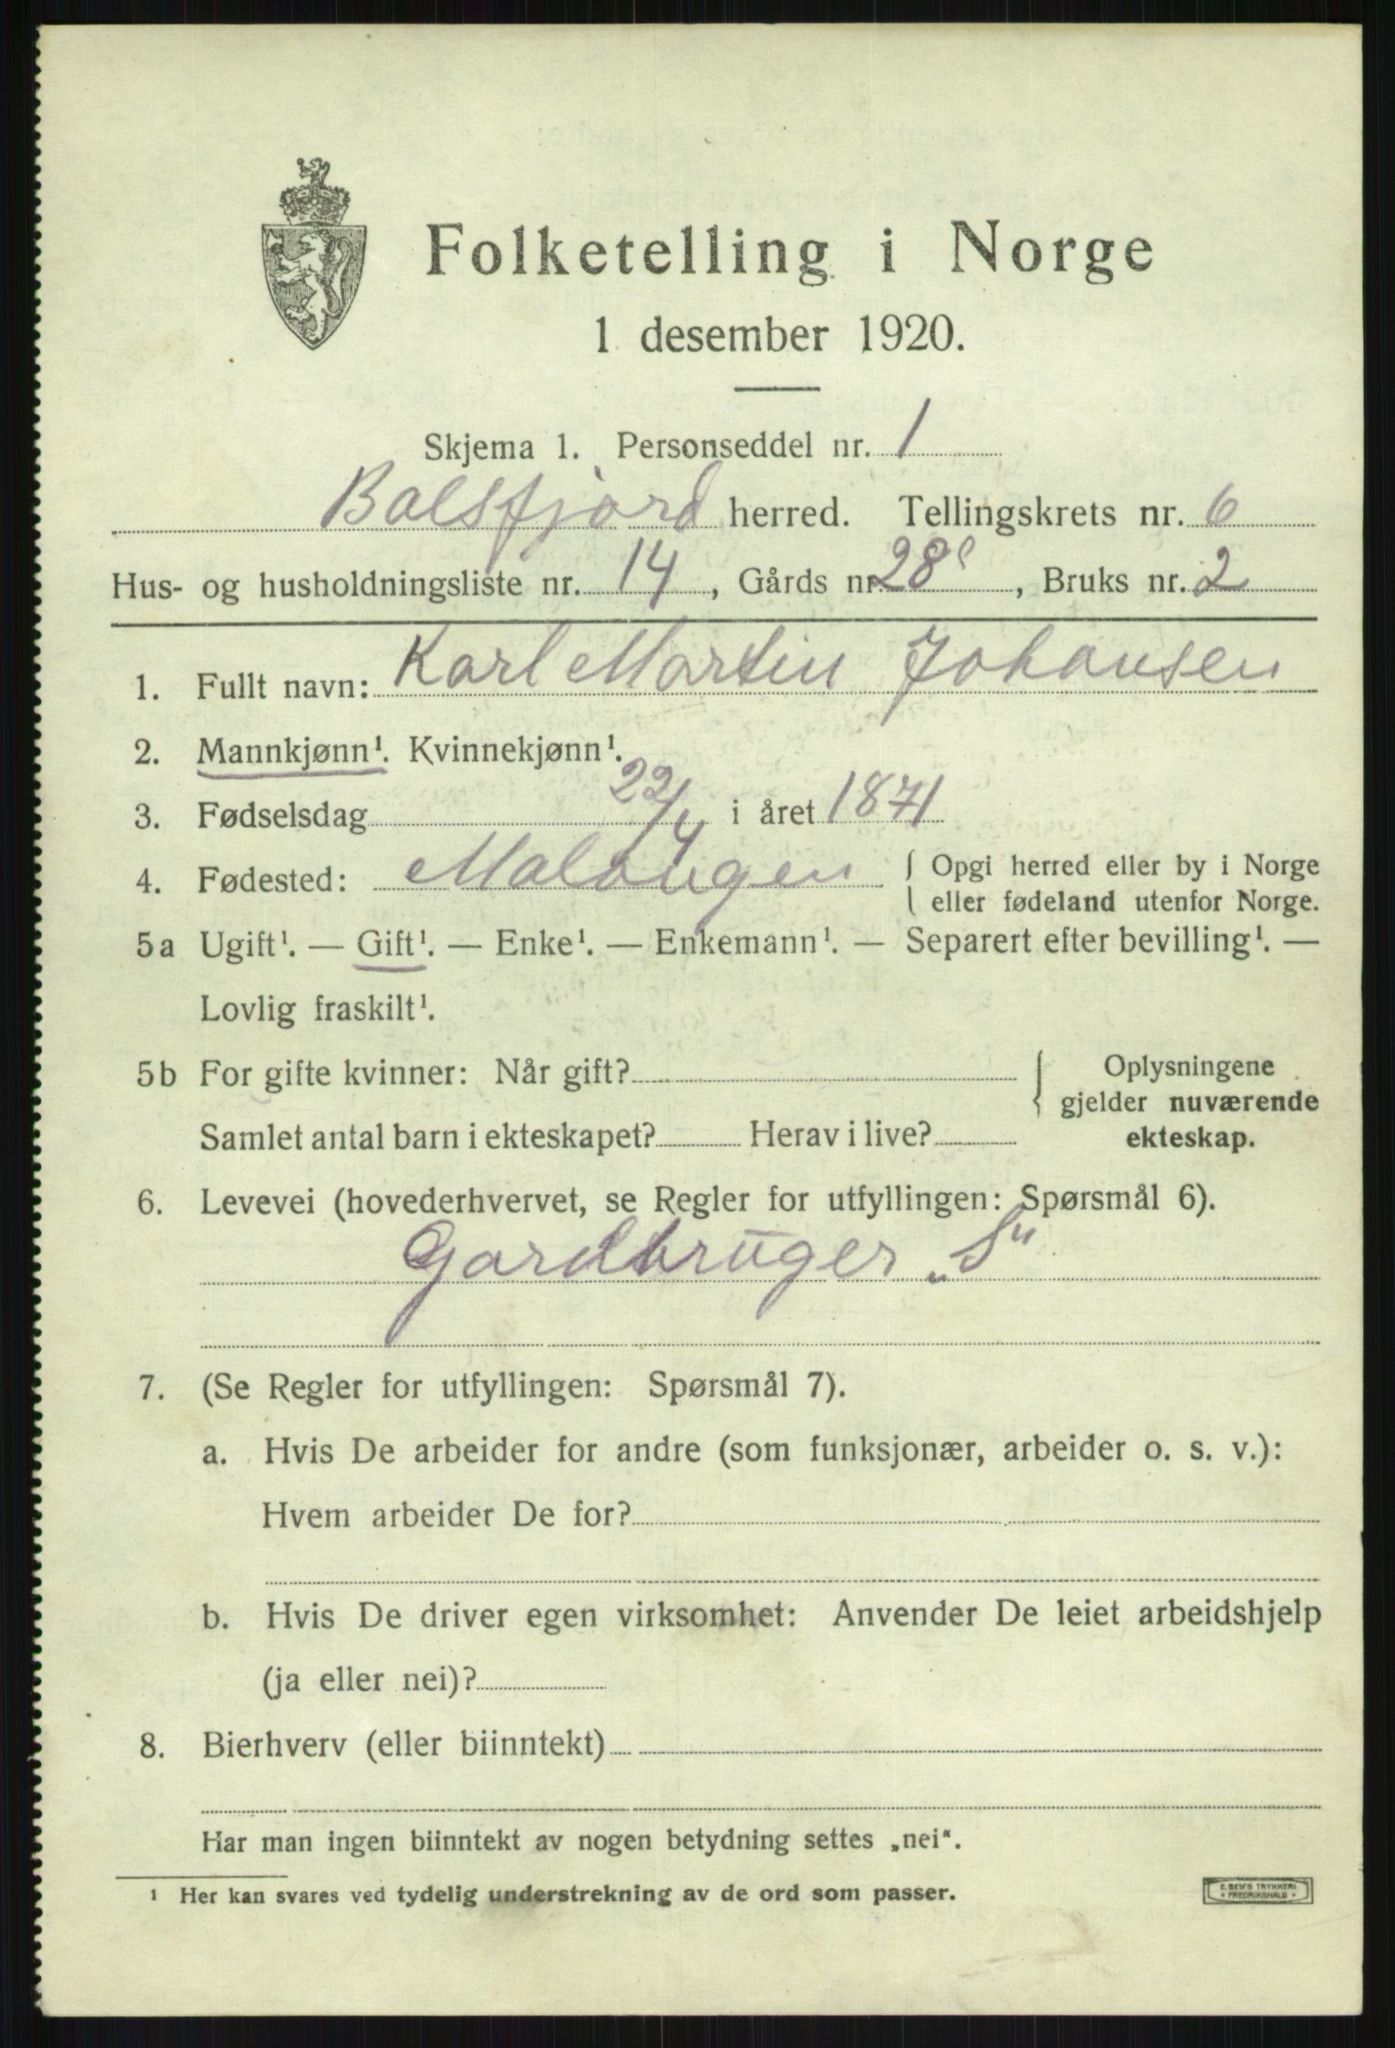 Folketelling i Norge
1 desember 1920.
Skjema 1. Personseddel nr. 1
Balsfjord herred. Tellingskrets nr. 6
Hus- og husholdningsliste nr. 14, Gårds nr. 28, Bruks nr. 2
1. Fullt navn: Karl Martin Johansen
2. Mannkjønn¹. Kvinnekjønn¹.
3. Fødselsdag 22/4 i året 1871
4. Fødested: Malangen { Opgi herred eller by i Norge
eller fødeland utenfor Norge.
5a Ugift¹. — Gift¹. — Enke¹. — Enkemann¹. — Separert efter bevilling¹. —
Lovlig fraskilt¹.
5b For gifte kvinner: Når gift? { Oplysningene
gjelder nuværende
Samlet antal barn i ekteskapet? Herav i live? ekteskap.
6. Levevei (hovederhvervet, se Regler for utfyllingen: Spørsmål 6).
Gardbruger „S"
7. (Se Regler for utfyllingen: Spørsmål 7).
a. Hvis De arbeider for andre (som funksjonær, arbeider o. s. v.):
Hvem arbeider De for?
b. Hvis De driver egen virksomhet: Anvender De leiet arbeidshjelp
(ja eller nei)?
8. Bierhverv (eller biinntekt)
Har man ingen biinntekt av nogen betydning settes „nei“.
¹ Her kan svares ved tydelig understrekning av de ord som passer.
E. SEM'S TRYKKERI
* FREDRIKSHALD *